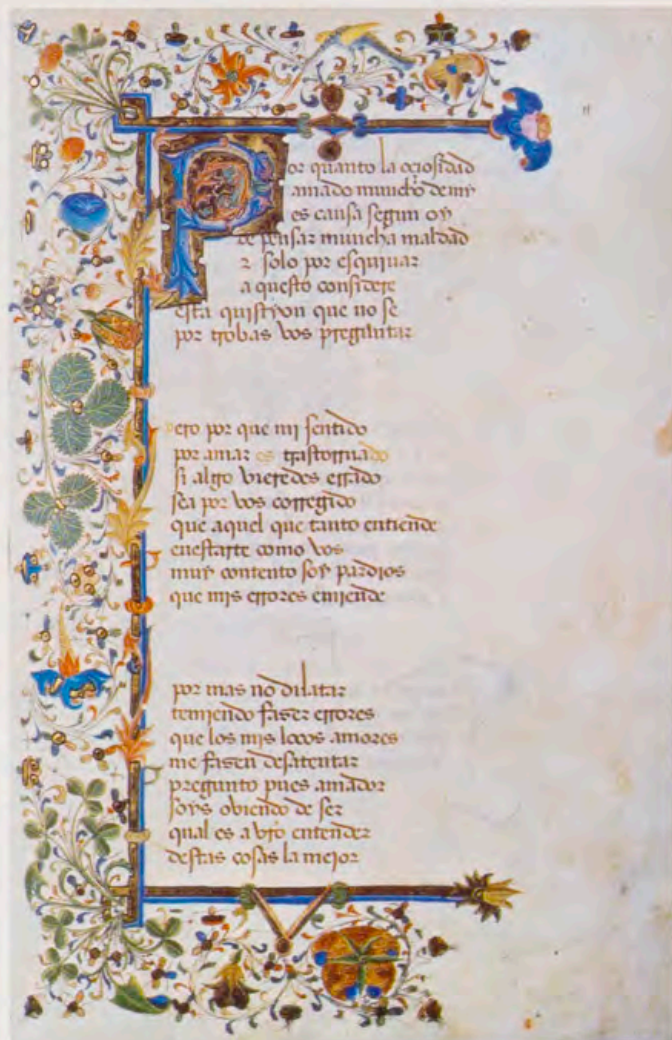 Por quanto la ociosidad
amado muncho de my
es causa segun oy
de pensar muncha maldad
z solo por esquiuar
a questo considere
esta quistyon que no se
por trobas vos preguntar
pero por que mi sentido
por amar es trastornado
si algo vieredes errado
sea por vos corregido
que aquel que tanto entiende
enestarte como vos
muy contento soy pardios
que mis errores emiende
por mas no dilatar
temiendo faser errores
que los mis locos amores
me fasen desatentar
pregunto pues amador
soys obiendo de ser
qual es a vro entender
destas cosas la mejor